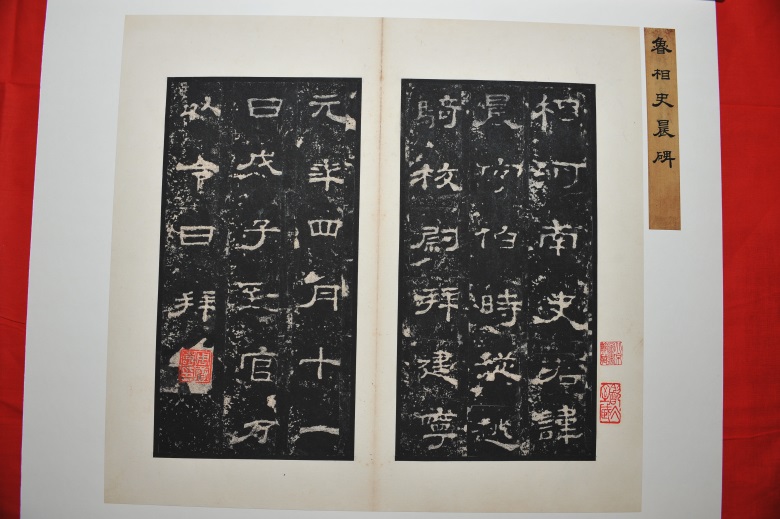 魯相史晨碑
相河南史君諱
晨字伯時從越
騎校尉拜建寧
元年四月十一
日戊子到官乃
以令日拜